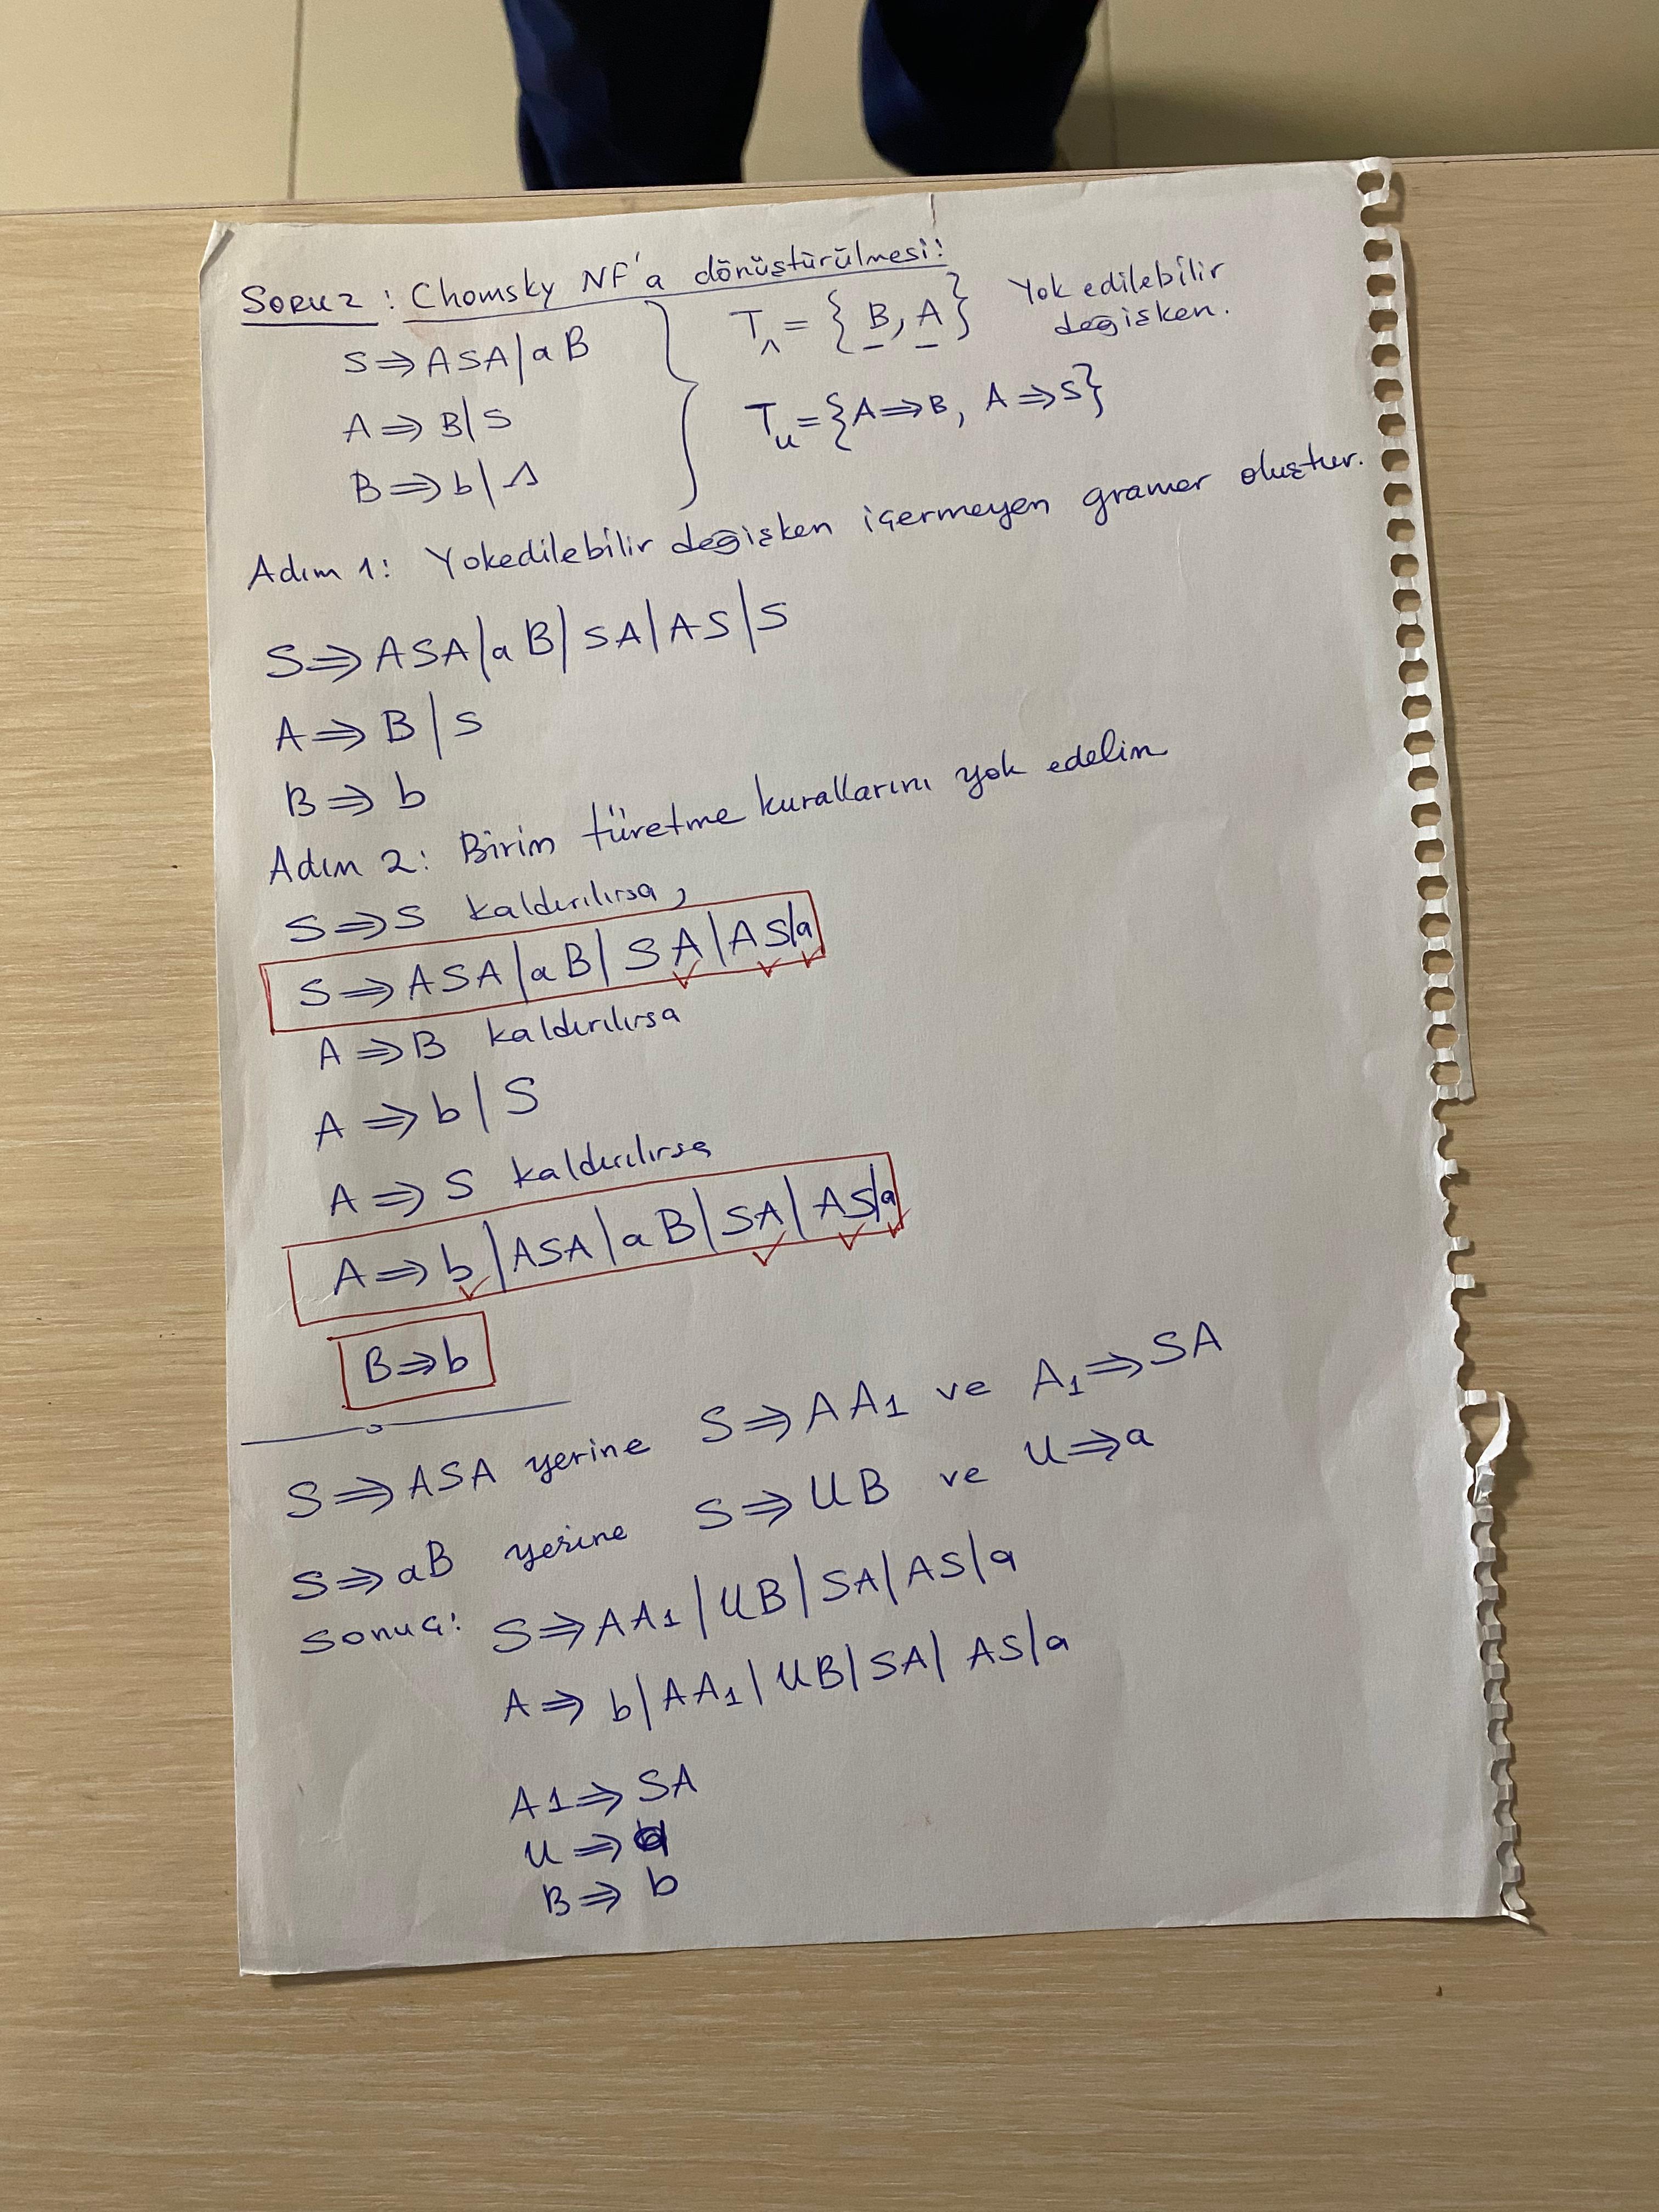 Soru 2 : Chomsky NF'a dönüştürülmesi:
S ⇒ ASA | aB
A ⇒ B | S
B ⇒ b | Λ
T_Λ = { B, A } Yok edilebilir
değişken.
T_u = {A ⇒ B, A ⇒ S}
Adım 1: Yokedilebilir değişken içermeyen gramer oluştur.
S ⇒ ASA | aB | SA | AS | S
A ⇒ B | S
B ⇒ b
Adım 2: Birim türetme kurallarını yok edelim
S ⇒ S kaldırılırsa,
S ⇒ ASA | aB | SA | AS | a
A ⇒ B kaldırılırsa
A ⇒ b | S
A ⇒ S kaldırılırsa
A ⇒ b | ASA | aB | SA | AS | a
B ⇒ b
S ⇒ ASA yerine S ⇒ AA1 ve A1 ⇒ SA
S ⇒ aB yerine S ⇒ UB ve U ⇒ a
Sonuç: S ⇒ AA1 | UB | SA | AS | a
A ⇒ b | AA1 | UB | SA | AS | a
A1 ⇒ SA
U ⇒ a
B ⇒ b